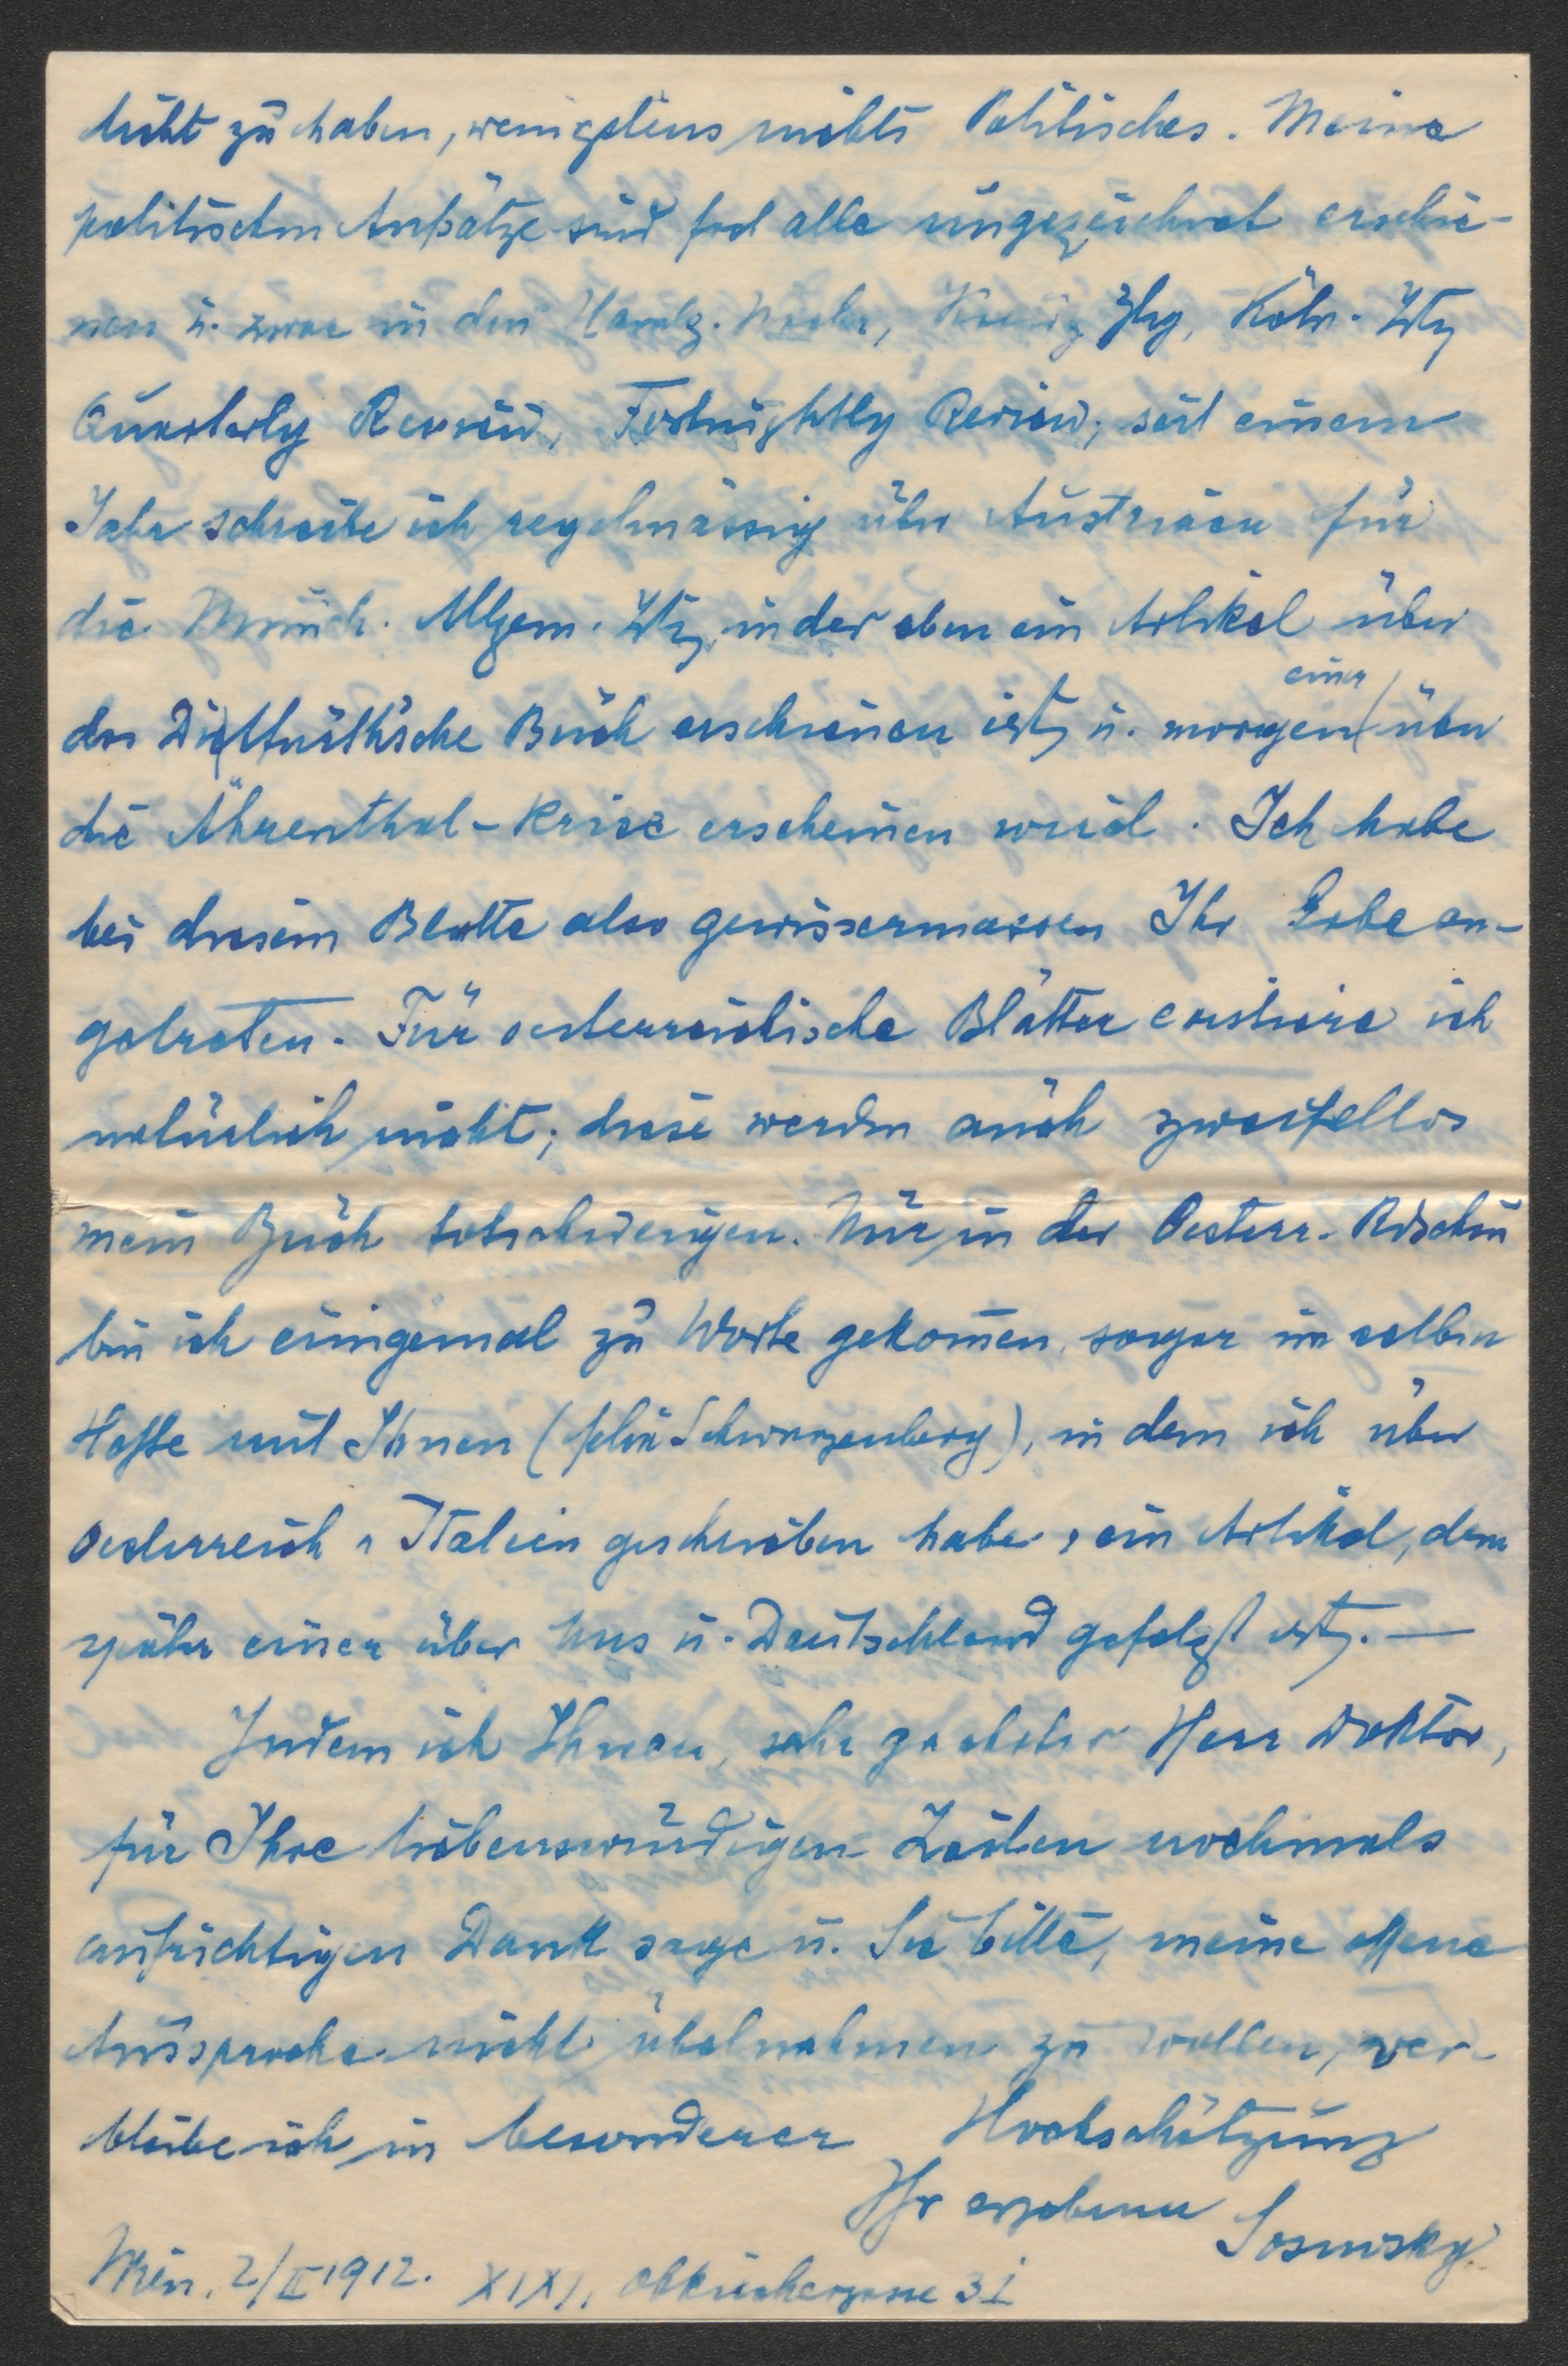 licht zu haben, wenigstens nichts Politisches. Meine
politischen Aufsätze sind fast alle ungezeichnet erschie-
nen u. zwar in den Hambg. Nachr., Ztg, Köln. Ztg
Quarterly Review, Fortnightly Review; seit einem
Jahr schreibe ich regelmässig über Austriaca für
die Münch. Allgem. Ztg, in der eben ein Artikel über
das Buch erschienen ist, u. morgen einer über
die Ährenthal-Krise erscheinen wird. Ich habe
bei diesem Blatte also gewissermassen Ihr Erbe an-
getreten. Für oesterreichische Blätter existiere ich
natürlich nicht; diese werden auch zweifellos
mein Buch totschweigen. Nur in der Oesterr. Rdschau
bin ich einigemal zu Worte gekom̄en, sogar im selben
Hefte mit Ihnen (Felix Schwarzenberg), in dem ich über
Oesterreich u Italien geschrieben habe, ein Artikel, dem
später einer über uns u. Deutschland gefolgt ist. —
Indem ich Ihnen, sehr geehrter Herr Doktor,
für Ihre liebenswürdigen Zeilen nochmals
aufrichtigen Dank sage u. Sie bitte, meine offene
Aussprache nicht übelnehmen zu wollen, ver-
bleibe ich in besonderer Hochschätzung
Ihr ergebener Sosnosky
Wien, 2/II 1912. XIX/1,